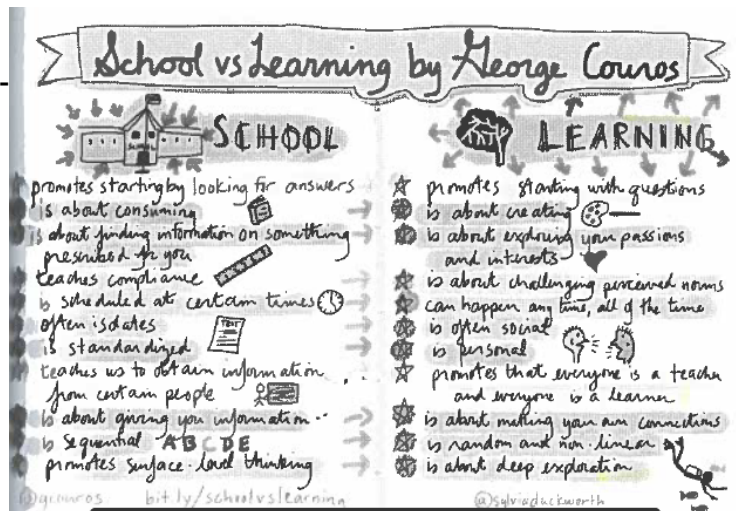 School vs Learning by George Couros
SCHOOL
promotes starting by looking for answers
is about consuming
is about finding information on something
prescribed for you
teaches compliance
is scheduled at certain times
often isolates
is standardized
TEST
teaches us to obtain information
from certain people
is about giving you information..
is sequential ABCDE
promotes surface-level thinking
@gcouros bit.ly/schoolvslearning
LEARNING
promotes starting with questions
is about creating
is about exploring your passions
and interests
is about challenging perceived norms
can happen any time, all of the time
is often social
is personal
promotes that everyone is a teacher
and everyone is a learner
is about making your own connections
is random and non-linear
is about deep exploration
@sylviaduckworth